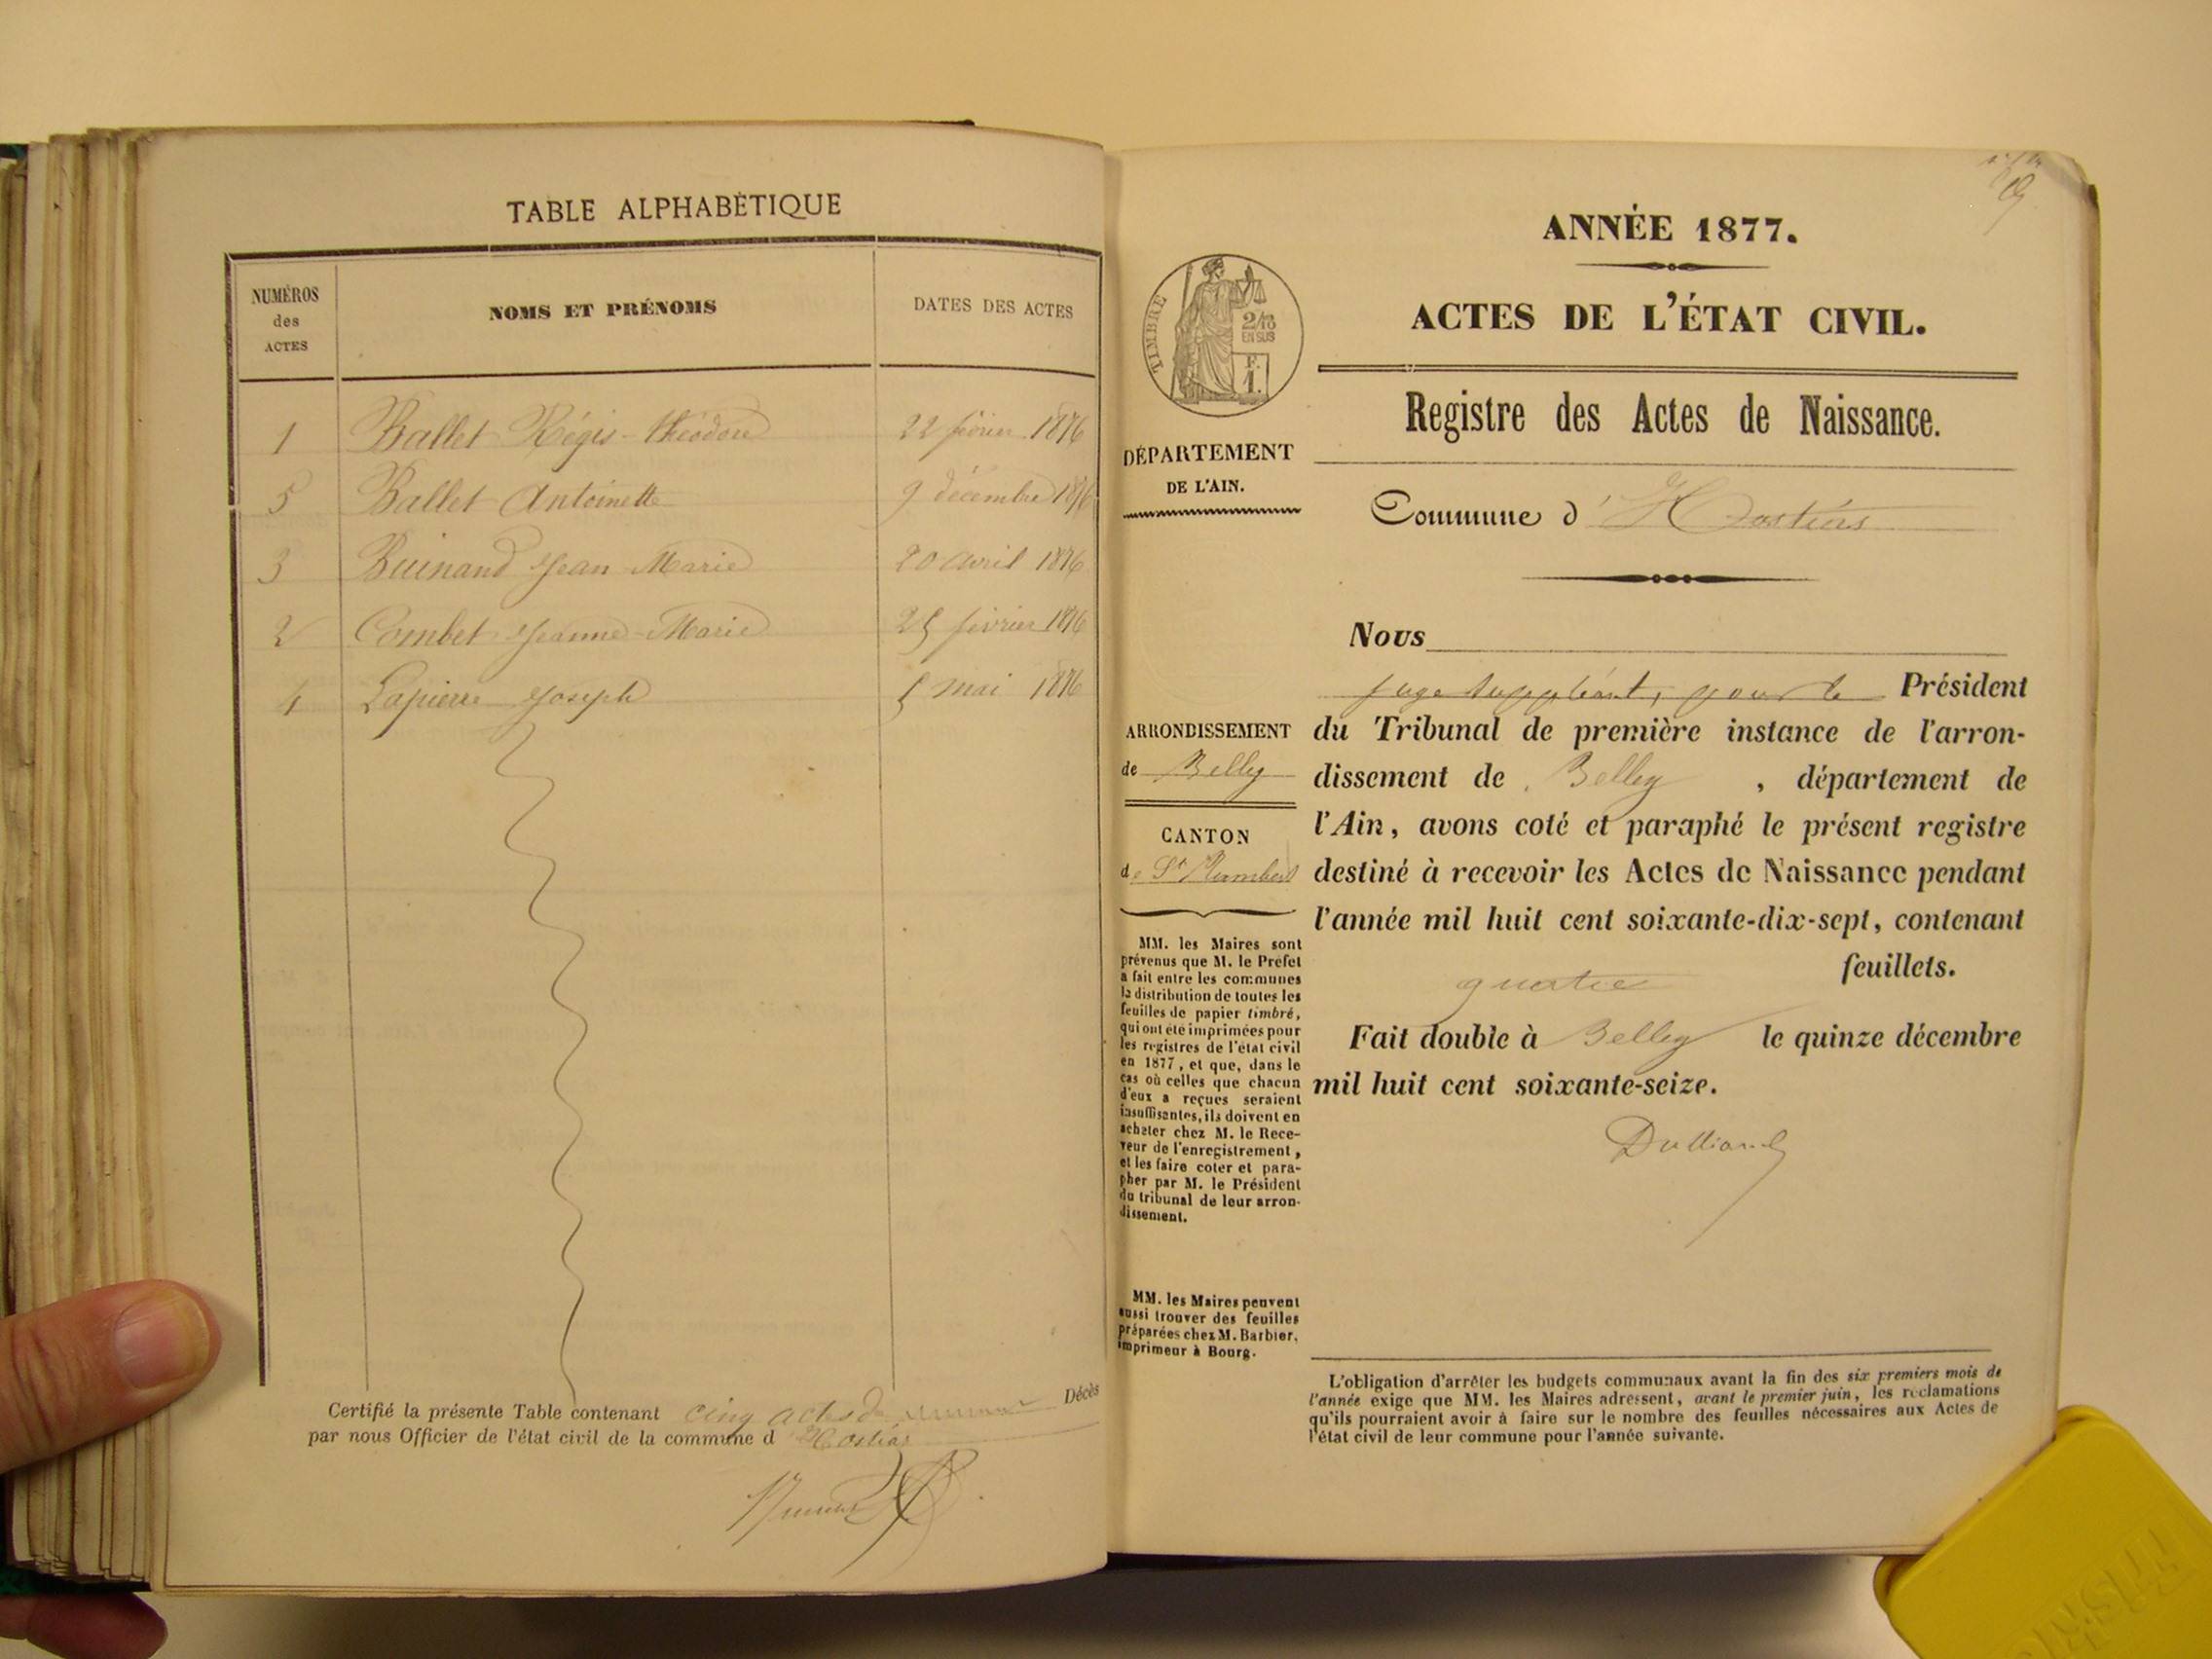 TABLE ALPHABÉTIQUE
NUMÉROS
des
ACTES
NOMS ET PRÉNOMS
DATES DES ACTES
1 Ballet Régis-Théodore 22 février 1876
5 Ballet Antoinette 9 décembre 1876
3 Buinand Jean Marie 20 avril 1876
2 Combet Jeanne-Marie 25 février 1876
4 Lapierre Joseph 5 mai 1876
Certifié la présente Table contenant cinq actes de Décès
par nous Officier de l'état civil de la commune d'Hostias
TIMBRE
2/10
EN SUS
F.
1.
DÉPARTEMENT
DE L'AIN.
ARRONDISSEMENT
de Belley
CANTON
de St Rambert
MM. les Maires sont
prévenus que M. le Préfet
a fait entre les communes
la distribution de toutes les
feuilles de papier timbré,
qui ont été imprimées pour
les registres de l'état civil
en 1877, et que, dans le
cas où celles que chacun
d'eux a reçues seraient
insuffisantes, ils doivent en
acheter chez M. le Rece-
veur de l'enregistrement,
et les faire coter et para-
pher par M. le Président
du tribunal de leur arron-
dissement.
MM. les Maires peuvent
aussi trouver des feuilles
préparées chez M. Barbier,
imprimeur à Bourg.
ANNÉE 1877.
ACTES DE L'ÉTAT CIVIL.
Registre des Actes de Naissance.
Commune d'Hostias
Nous
juge suppléant, pour le Président
du Tribunal de première instance de l'arron-
dissement de Belley, département de
l'Ain, avons coté et paraphé le présent registre
destiné à recevoir les Actes de Naissance pendant
l'année mil huit cent soixante-dix-sept, contenant
quatre feuillets.
Fait double à Belley le quinze décembre
mil huit cent soixante-seize.
L'obligation d'arrêter les budgets communaux avant la fin des six premiers mois de
l'année exige que MM. les Maires adressent, avant le premier juin, les réclamations
qu'ils pourraient avoir à faire sur le nombre des feuilles nécessaires aux Actes de
l'état civil de leur commune pour l'année suivante.